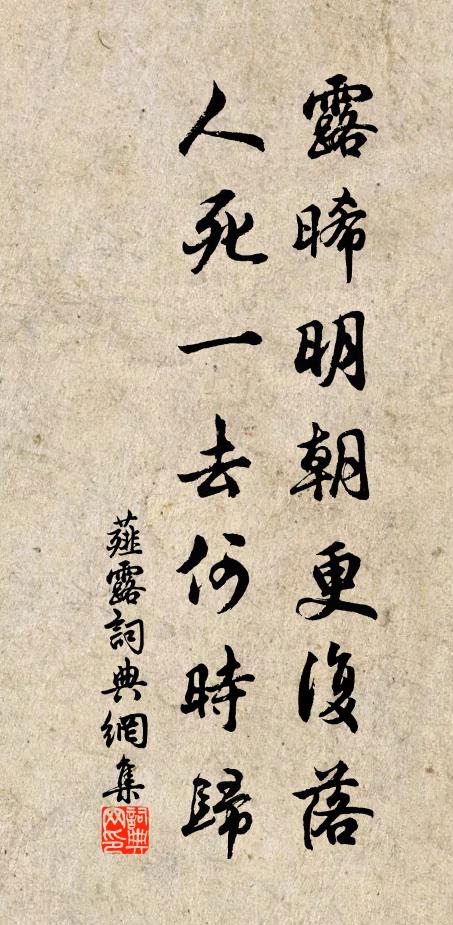 露晞明朝更復落
人死一去何時歸
薤露詞典網集
詞典網印